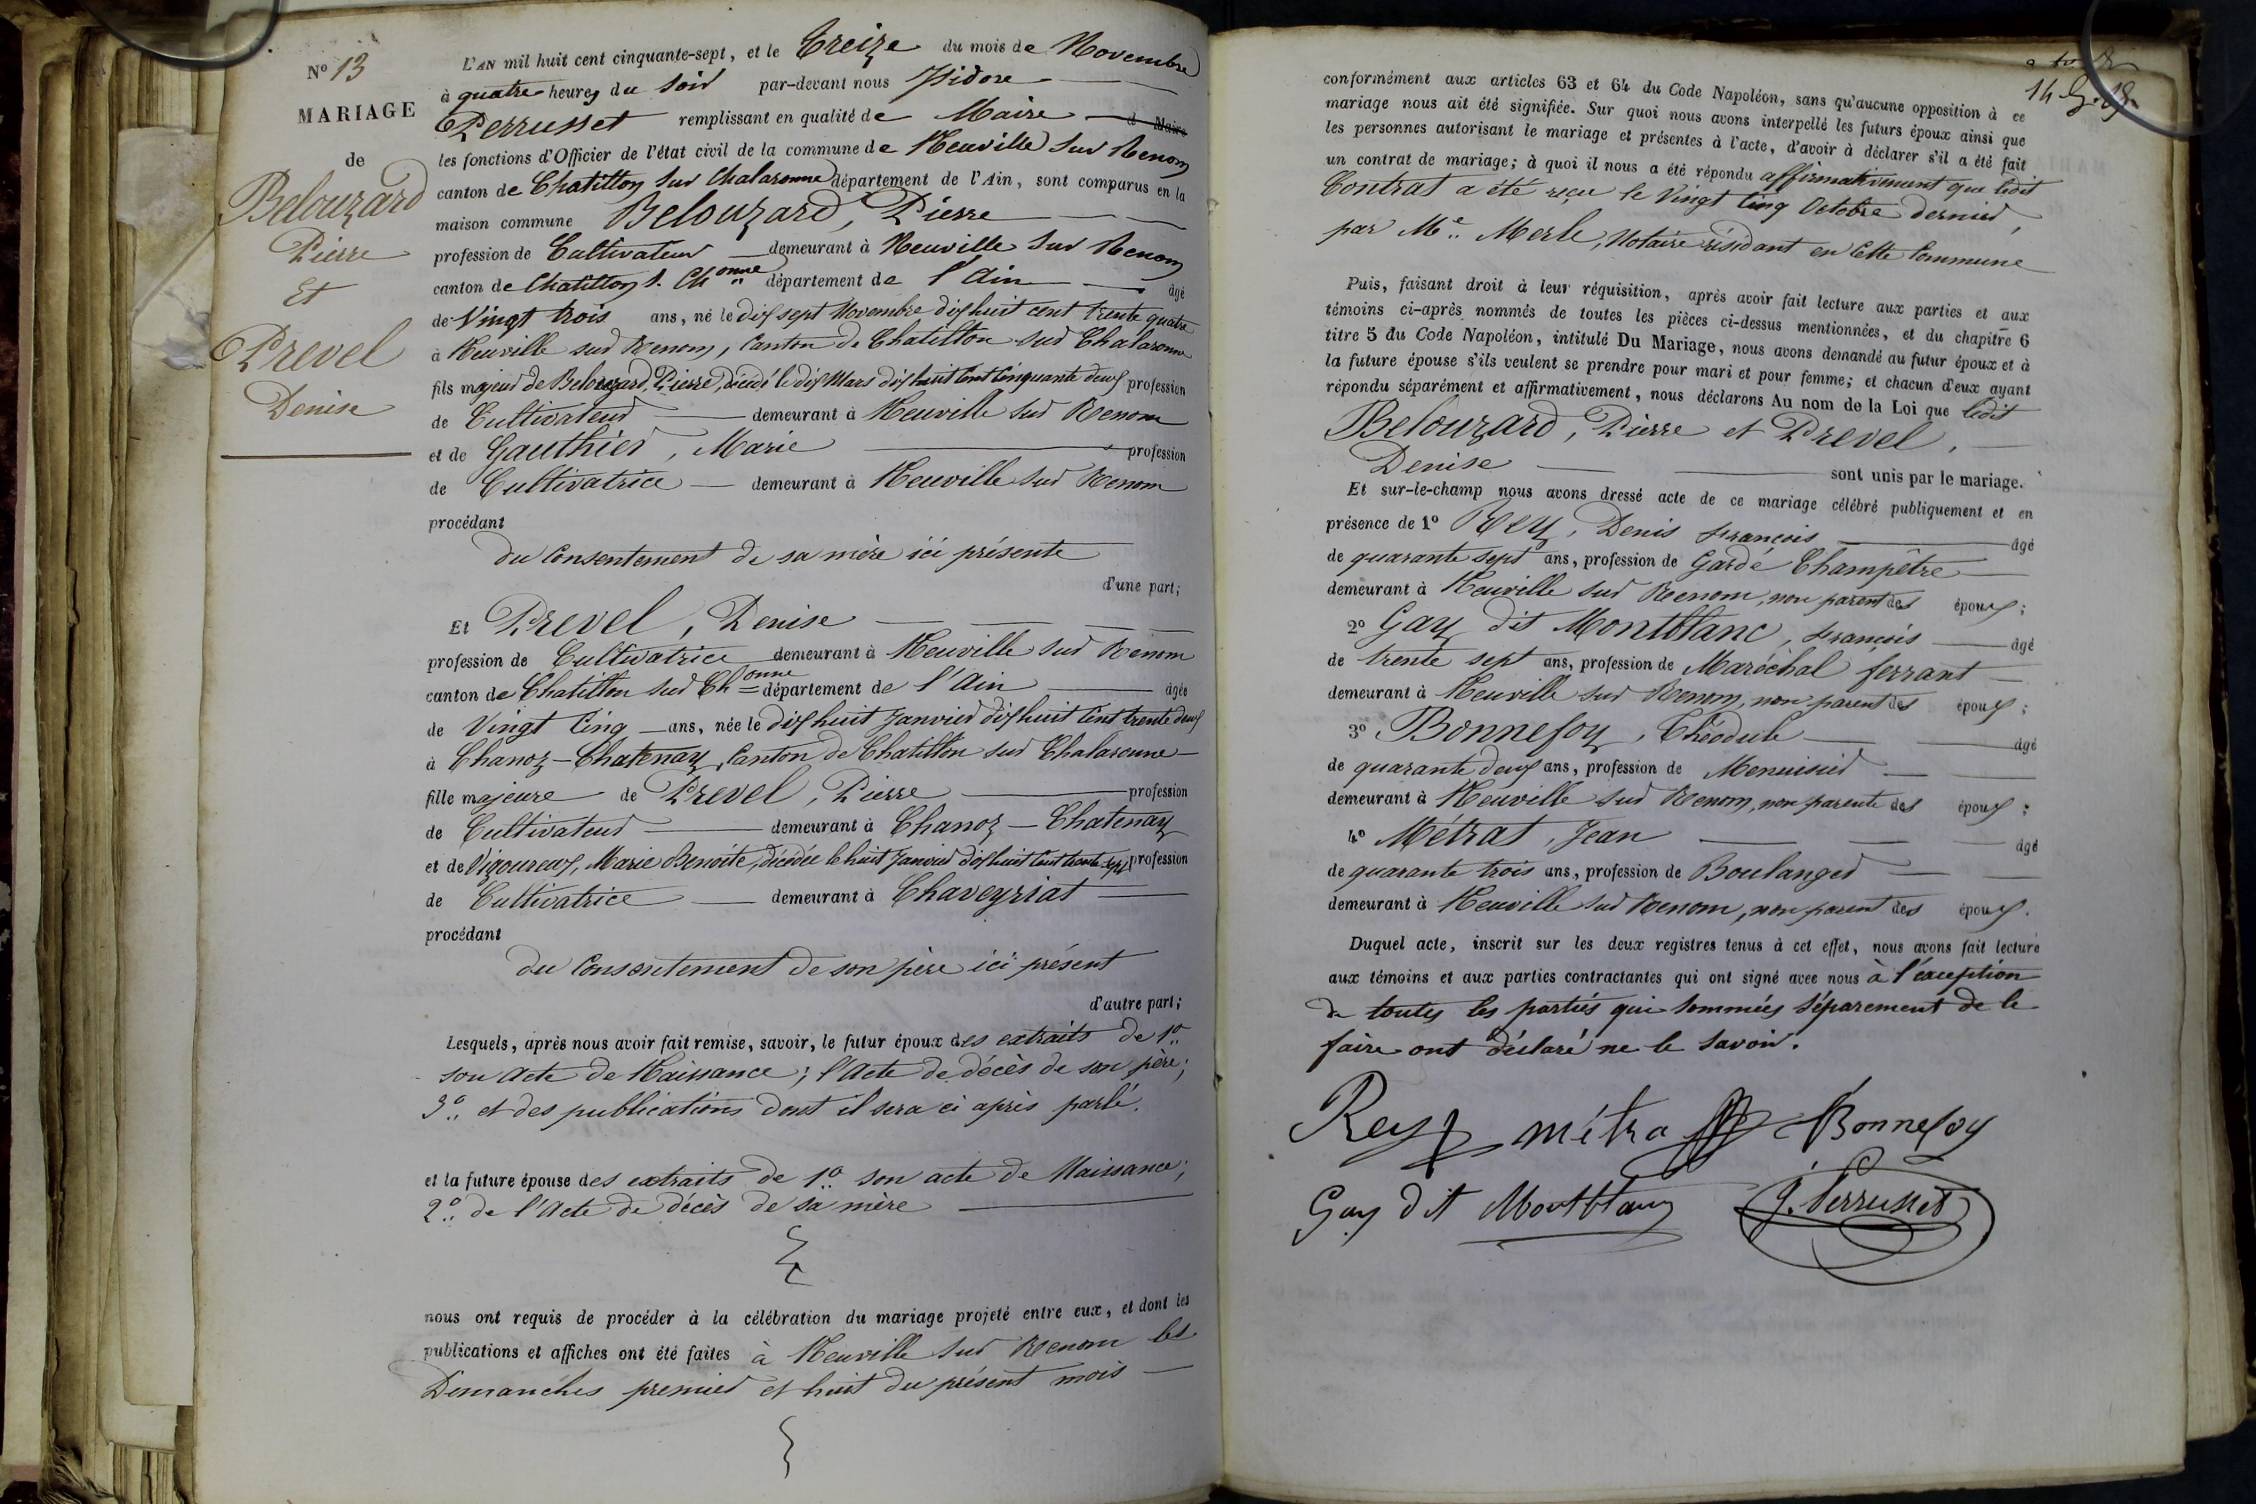 N° 13
MARIAGE
de
Belouzard
Pierre
Et
Prevel
Denise
L'AN mil huit cent cinquante-sept, et le Treize du mois de Novembre
à quatre heures du soir par-devant nous Isidore
Perrusset remplissant en qualité de Maire
les fonctions d'Officier de l'état civil de la commune de Neuville sur Renom
canton de Chatillon sur Chalaronne département de l'Ain, sont comparus en la
maison commune Belouzard, Pierre
profession de Cultivateur demeurant à Neuville sur Renom
canton de Chatillon s. Ch^onne département de l'Ain âgé
de Vingt trois ans, né le dix sept Novembre dix huit cent trente quatre
à Neuville sur Renom, Canton de Chatillon sur Chalaronne
fils majeur de Belouzard, Pierre, décédé le dix Mars dix huit Cent Cinquante deux profession
de Cultivateur demeurant à Neuville sur Renom
et de Gauthier, Marie profession
de Cultivatrice demeurant à Neuville sur Renom
procédant
du Consentement de sa mère ici présente
d'une part;
Et Prevel, Denise
profession de Cultivatrice demeurant à Neuville sur Renom
canton de Chatillon sur Ch^onne département de l'Ain âgée
de Vingt Cinq ans, née le dix huit Janvier dix huit Cent trente deux
à Chanoz-Chatenay, Canton de Chatillon sur Chalaronne
fille majeure de Prevel, Pierre profession
de Cultivateur demeurant à Chanoz-Chatenay
et de Vigoureux, Marie Benoite, décédée le huit Janvier dix huit Cent trente sept profession
de Cultivatrice demeurant à Chaveyriat
procédant
du Consentement de son père ici présent
d'autre part;
Lesquels, après nous avoir fait remise, savoir, le futur époux des extraits de 1°
son acte de Naissance; l'Acte de décès de son père;
3° et des publications dont il sera ci après parlé.
et la future épouse des extraits de 1° son acte de Naissance;
2° de l'Acte de décès de sa mère
nous ont requis de procéder à la célébration du mariage projeté entre eux, et dont les
publications et affiches ont été faites à Neuville sur Renom les
Dimanches premier et huit du présent mois
conformément aux articles 63 et 64 du Code Napoléon, sans qu'aucune opposition à ce
mariage nous ait été signifiée. Sur quoi nous avons interpellé les futurs époux ainsi que
les personnes autorisant le mariage et présentes à l'acte, d'avoir à déclarer s'il a été fait
un contrat de mariage; à quoi il nous a été répondu affirmativement que ledit
Contrat a été reçu le Vingt Cinq Octobre dernier,
par M^e Merle, Notaire résidant en cette Commune
Puis, faisant droit à leur réquisition, après avoir fait lecture aux parties et aux
témoins ci-après nommés de toutes les pièces ci-dessus mentionnées, et du chapitre 6
titre 5 du Code Napoléon, intitulé Du Mariage, nous avons demandé au futur époux et à
la future épouse s'ils veulent se prendre pour mari et pour femme; et chacun d'eux ayant
répondu séparément et affirmativement, nous déclarons Au nom de la Loi que ledit
Belouzard, Pierre et Prevel,
Denise sont unis par le mariage.
Et sur-le-champ nous avons dressé acte de ce mariage célébré publiquement et en
présence de 1° Rey, Denis François âgé
de quarante sept ans, profession de Garde Champêtre
demeurant à Neuville sur Renom, non parent des époux;
2° Gay dit Montblanc, François âgé
de trente sept ans, profession de Maréchal ferrant
demeurant à Neuville sur Renom, non parent des époux;
3° Bonnefoy, Théodule âgé
de quarante deux ans, profession de Menuisier
demeurant à Neuville sur Renom, non parente des époux;
4° Métrat, Jean âgé
de quarante trois ans, profession de Boulanger
demeurant à Neuville sur Renom, non parent des époux.
Duquel acte, inscrit sur les deux registres tenus à cet effet, nous avons fait lecture
aux témoins et aux parties contractantes qui ont signé avec nous à l'exception
de toutes les parties qui sommées séparement de le
faire ont déclaré ne le savoir.
Rey métra Bonnefoy
Gay dit Montblanc J. Perrusset